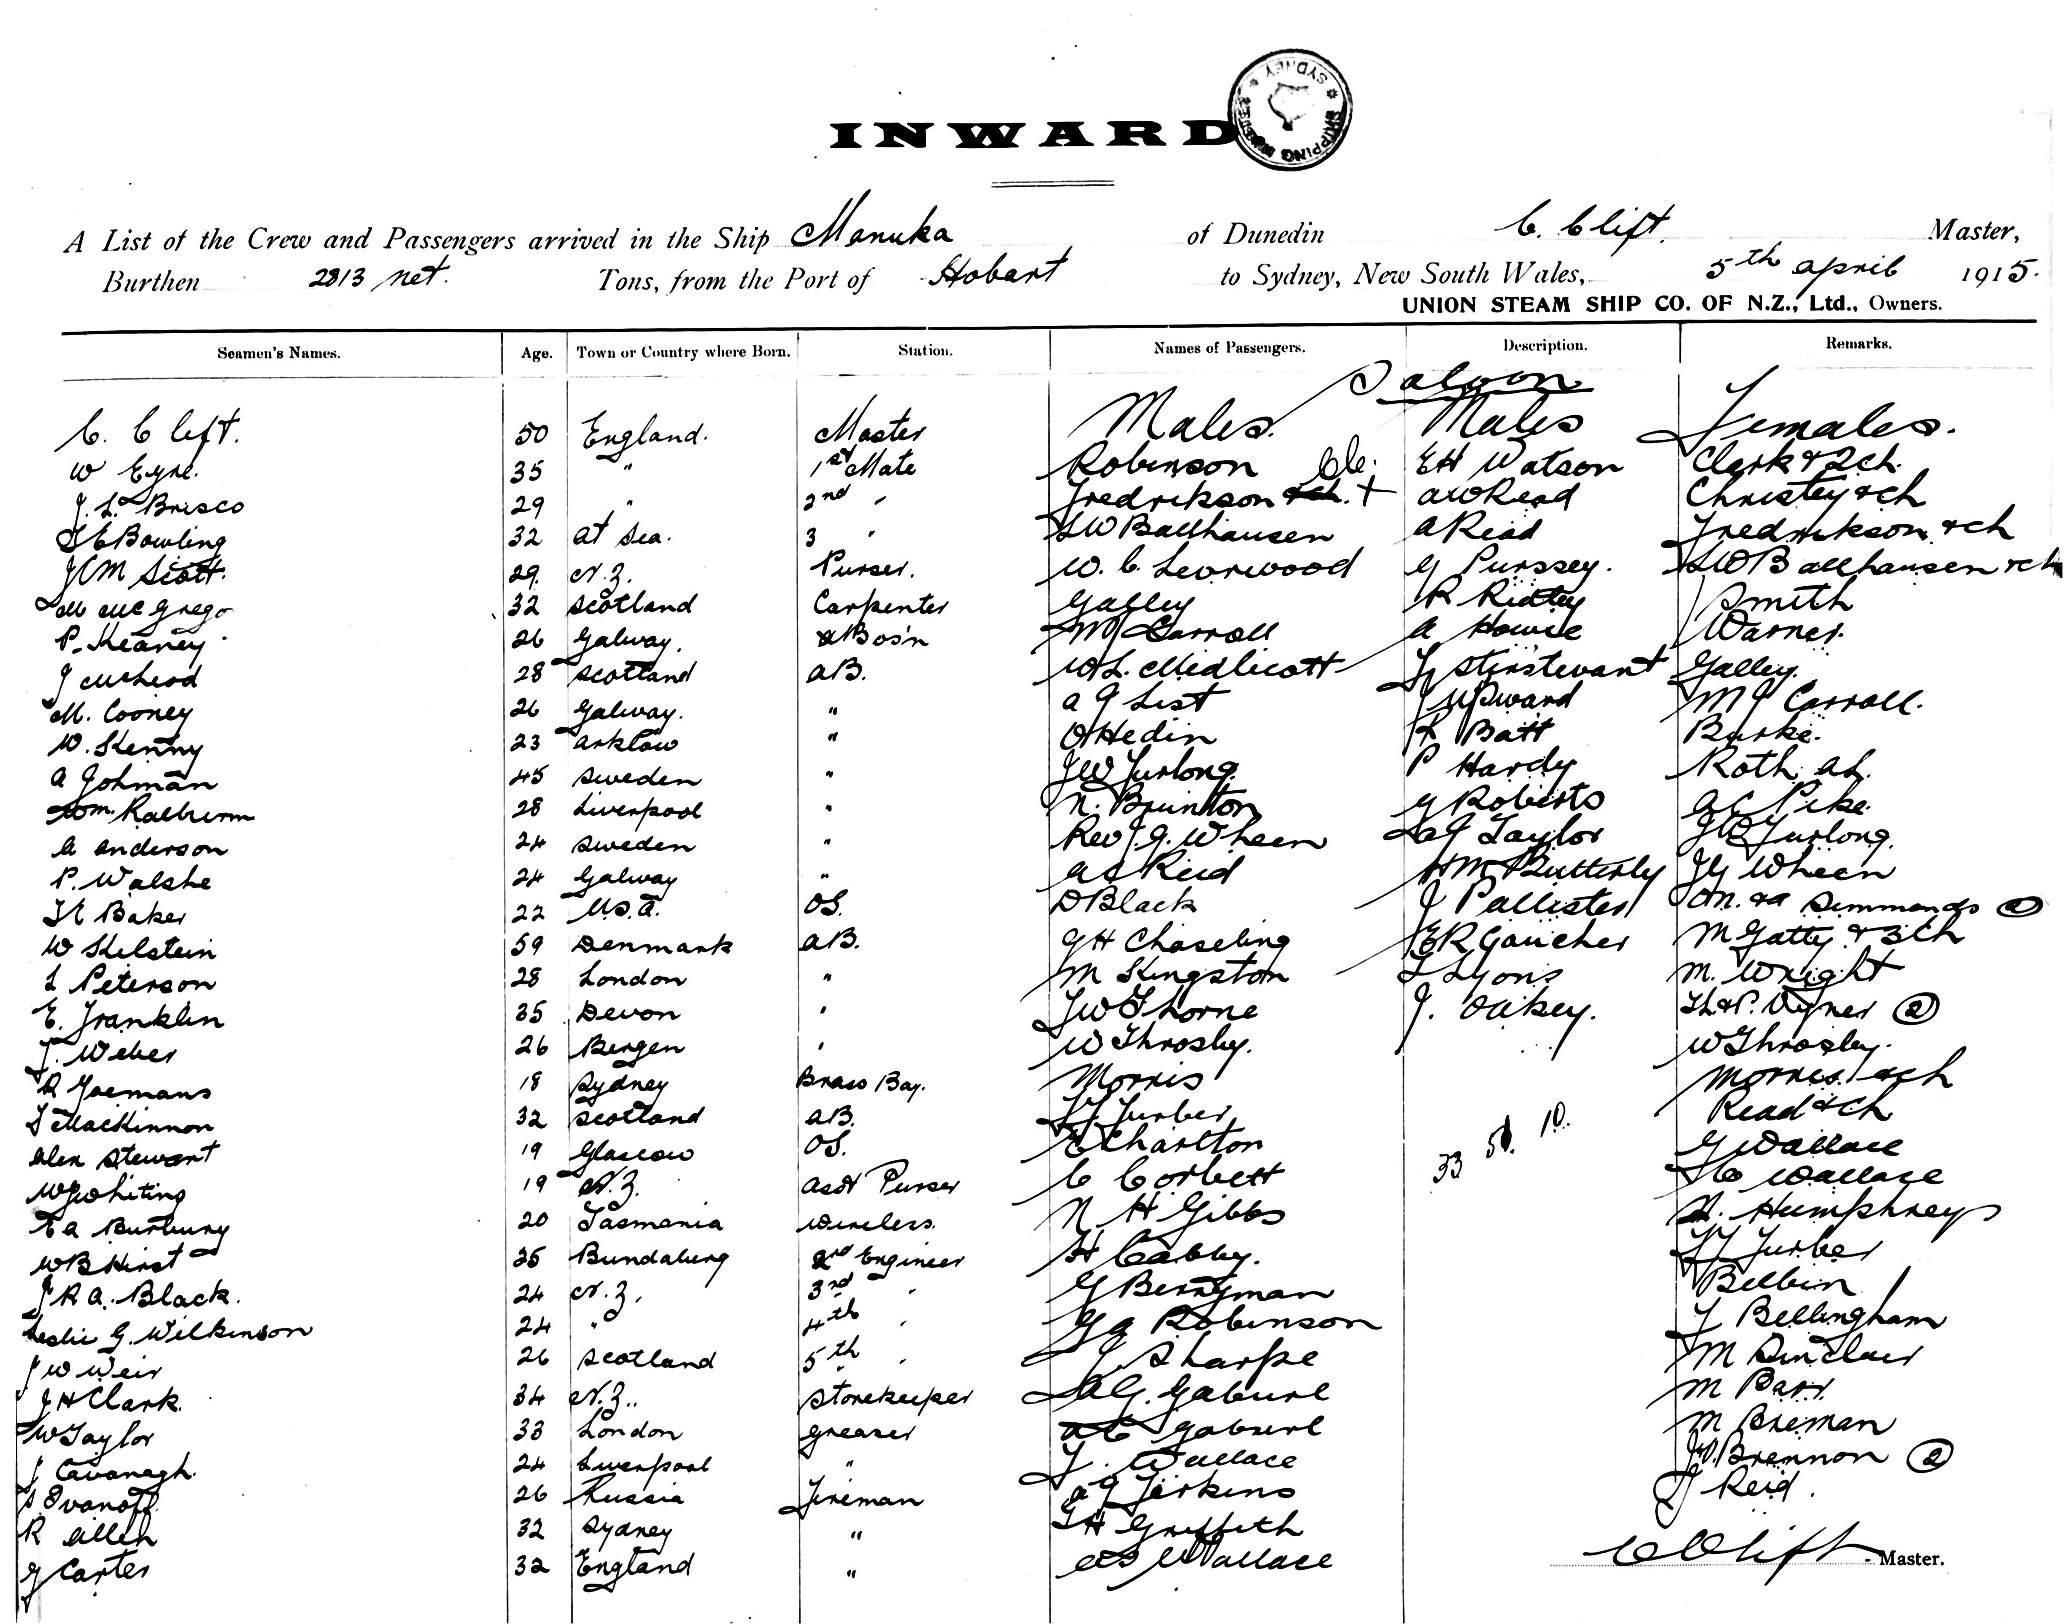 INWARD
SHIPPING SYDNEY
A List of the Crew and Passengers arrived in the Ship Manuka of Dunedin C. Clift. Master,
Burthen 2813 net. Tons, from the Port of Hobart to Sydney, New South Wales, 5th april 1915.
UNION STEAM SHIP CO. OF N.Z., Ltd., Owners.
Seamen's Names. Age. Town or Country where Born. Station. Names of Passengers. Description. Remarks.
Saloon
C. Clift. 50 England. Master Males. Males Females.
W Eyre. 35 " 1st Mate Robinson EH Watson Clark & 2ch.
J. L. Brisco 29 " 2nd " Fredrikson & ch. + aWRead Christey & ch
Bowling 32 at sea. 3 " LW Ballhausen a Read Fredrikson & ch
Scott. 29. N.Z. Purser. W. C. G Purssey. LW Ballhausen & ch
M McGrego 32 Scotland Carpenter Galley R Ridley Smith
P. Keaney 26 Galway. Bos'n M J Carroll a Howie Warner.
J McLeod 28 Scotland aB. W L. Medlicott Sturstevant Galley.
M. Cooney 26 Galway. " a G List J Upward M J Carroll.
W. Kenny 23 arklow " O Hedin R Batt Burke.
a Johman 45 Sweden " JW Furlong. P Hardy Roth
Wm. 28 Liverpool " N. Brunton G Roberts Pike.
a anderson 24 Sweden " Rev J. G. Wheen Taylor Furlong.
P. Walshe 24 Galway " a S Reid HM Butterly JG Wheen
Baker 22 U.S.a. OS. D Black J Pallister Simmonds (2)
W Kilstein 59 Denmark aB. GH Chaseling ER Gaucher M Gatty & 3ch
L Peterson 28 London " M Kingston Lyons M. Wright
E. Franklin 35 Devon " JW Thorne J. Oakey. (2)
J. Weber 26 Bergen " W Throsby. W Throsby.
R Yoemans 18 Sydney Brass Boy. Morris Morris & ch
MacKinnon 32 Scotland aB. Furber Read & ch
alex Stewart 19 Glascow OS. E Charlton 33 50. 10. G Wallace
WJ Whiting 19 N.Z. asst Purser C Corbett Wallace
Ea Burbury 20 Tasmania Wireless. N H Gibbs Humphreys
WB Hirst 35 Bundaberg 2nd Engineer H Cabby. Furber
J R a. Black. 24 N.Z. 3rd " G Berryman Belbin
Leslie G. Wilkinson 24 " 4th " Robinson Bellingham
J W Weir 26 Scotland 5th " J Sharpe M Sinclair
J H Clark. 34 N.Z.. Storekeeper M Barr
W Taylor 33 London greaser M Breman
J Cavanagh. 24 Liverpool " Wallace Brennon (2)
Ivanoff. 26 Russia Fireman Jerkins J Reid.
R allen 32 Sydney " H Griffith
G Carter 32 England " Wallace C Clift. Master.